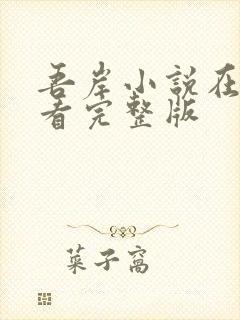 吾岸小說在
看完整版
菜子窩